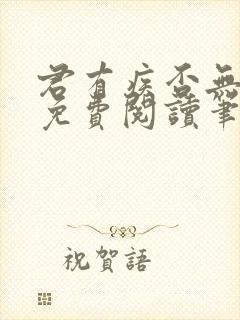 君有疾否無
免費閱讀筆
祝賀語